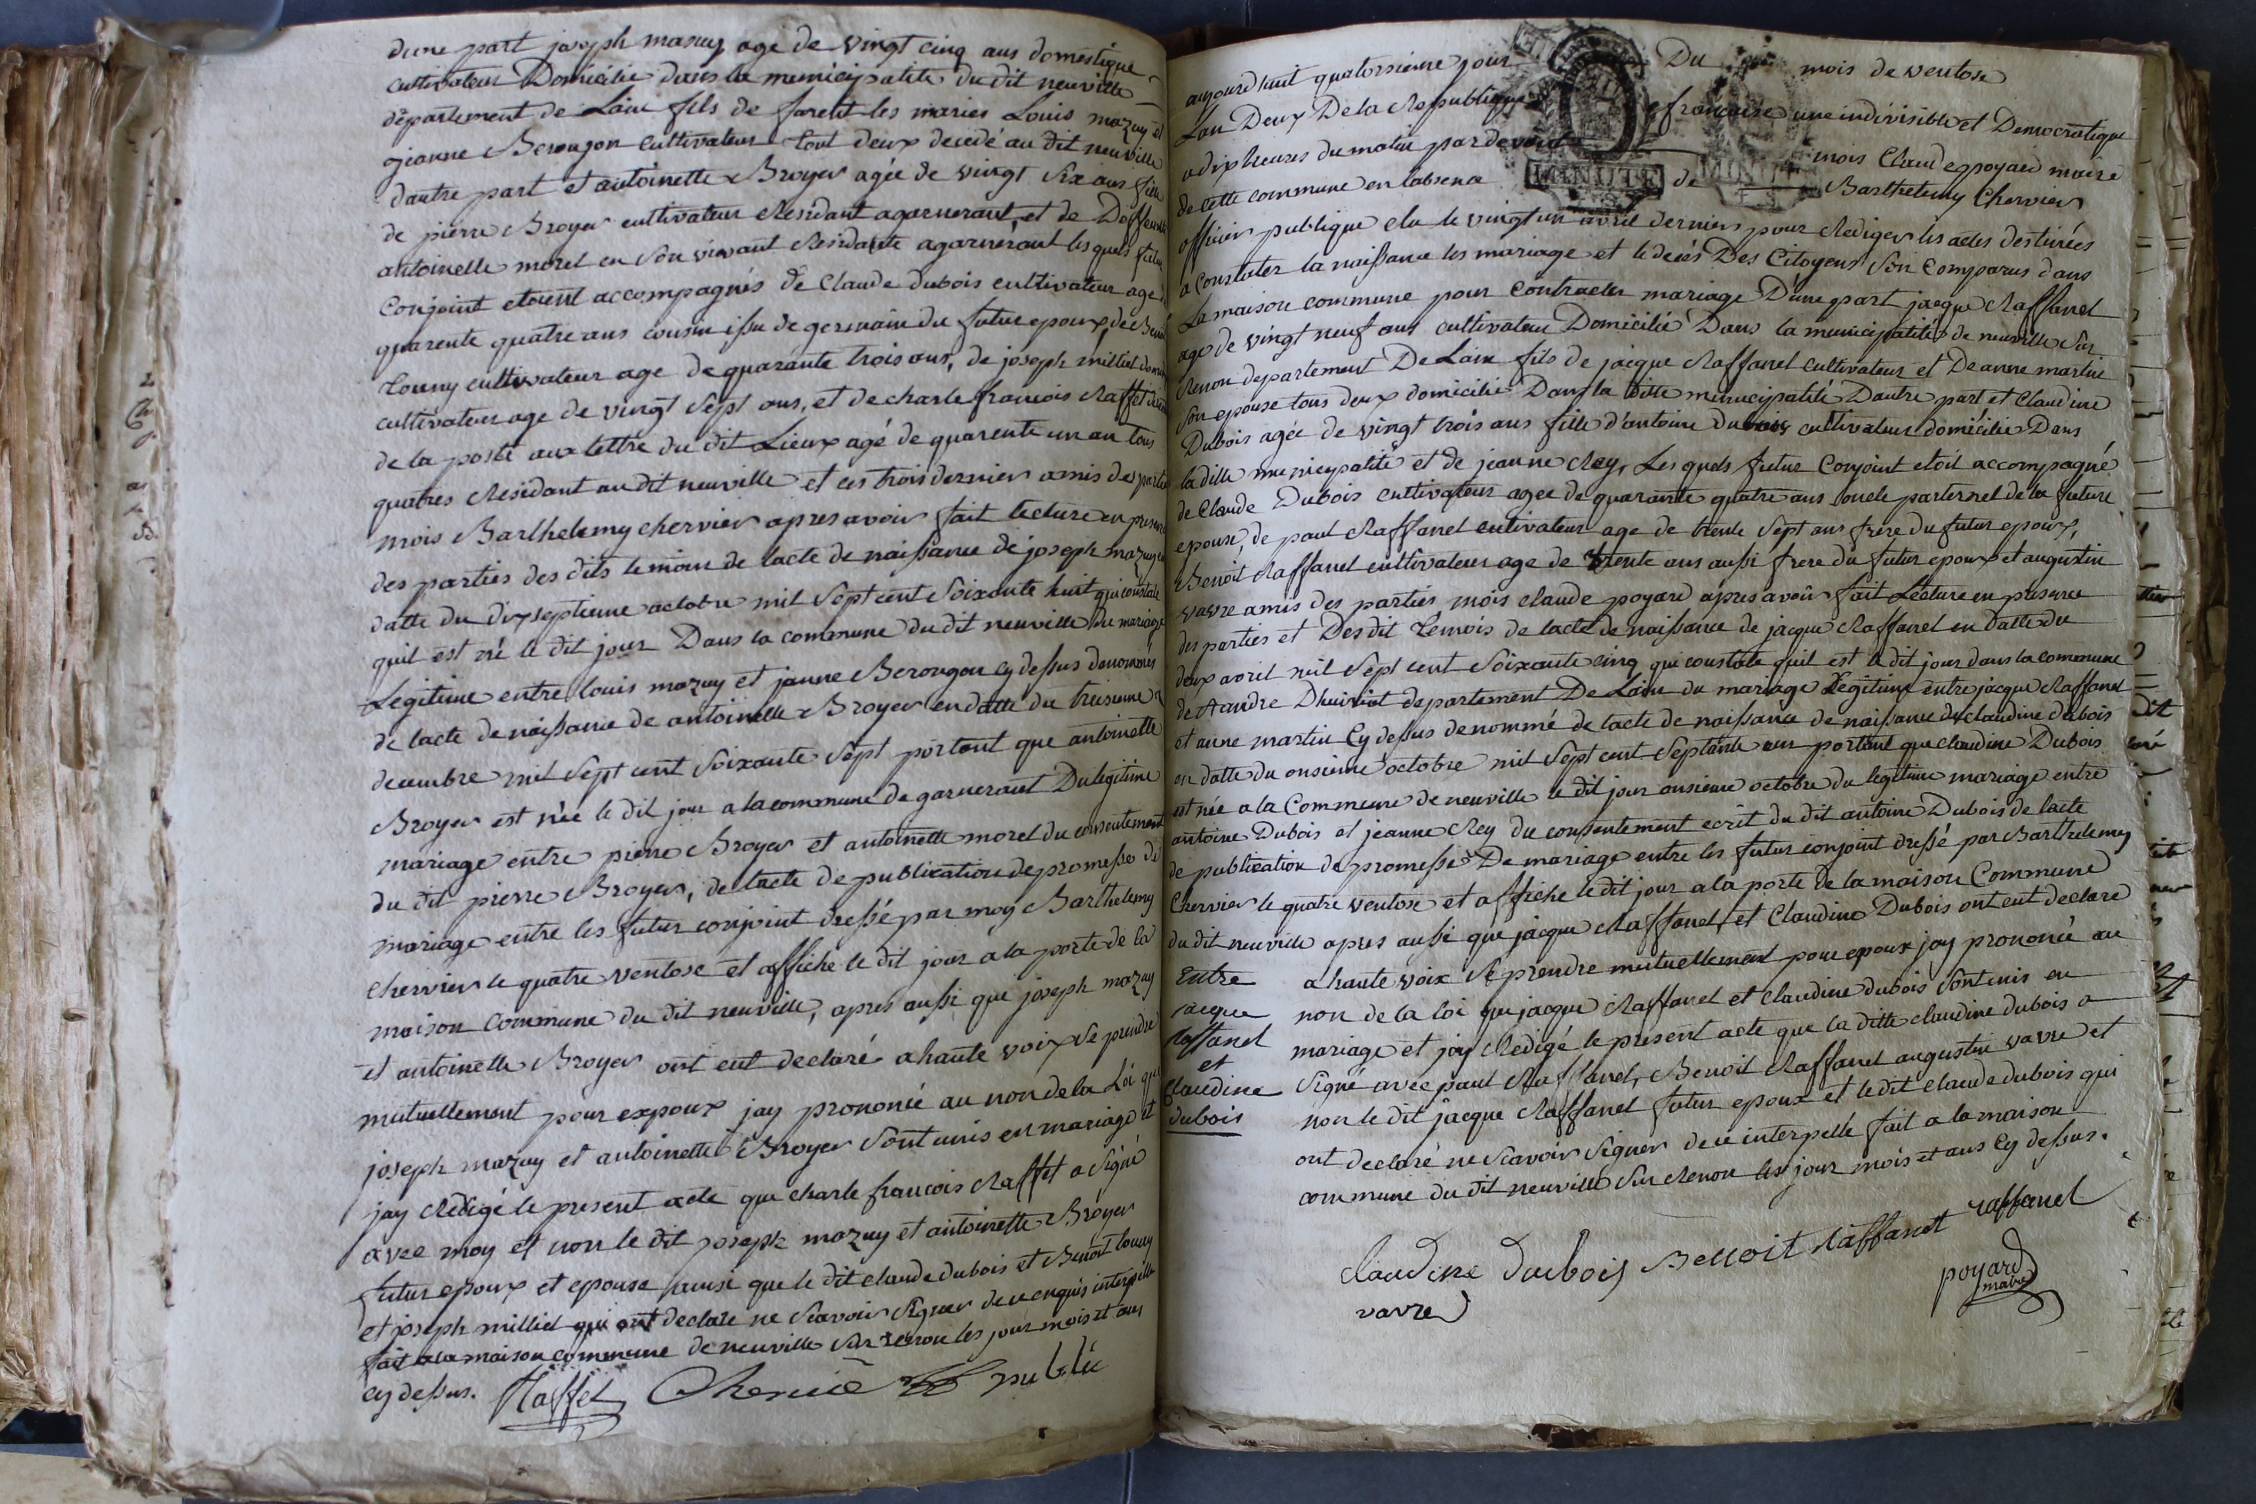 dune part joseph mazuy age de vingt cinq ans domestique
cultivateur Domicilié dans la municipalité du dit neuville
département de Lain fils de les maries Louis mazuy et
jeanne Berougon cultivateur tout deux decedé au dit neuville
dautre part et antoinette Broyer agée de vingt six ans fille
de pierre Broyer cultivateur Residant agarnerant et de
antoinette morel en son vivant Residante agarnerant les quels futur
conjoint etoient accompagnés de Claude dubois cultivateur age
quarente quatre ans cousin issu de germain du futur epoux de Benoit
Louny cultivateur age de quarante trois ans, de joseph milliet
cultivateur age de vingt sept ans, et de charle francois Raffet
de la poste aux lettre du dit Lieux agé de quarente un an tous
quatres Residant au dit neuville et les trois dernier amis des partie
mois Barthelemy chervier apres avoir fait lecture en presence
des parties des dits temoin de lacte de naissance de joseph mazuy en
datte du dixseptieme octobre mil sept cent soixante huit qui constate
quil est né le dit jour Dans la commune du dit neuville du mariage
Legitime entre louis mazuy et janne Berougon cy dessus denommés
de lacte de naissance de antoinette Broyer en datte du treisieme
decembre mil sept cent soixante sept portant que antoinette
Broyer est née le dit jour a la commune de garnerant Du legitime
mariage entre pierre Broyer et antoinette morel du consentement
du dit pierre Broyer, de lacte de publication de promesse de
mariage entre les futur conjoint dressé par moy Barthelemy
chervier le quatre ventose et affiché le dit jour a la porte de la
maison commune du dit neuville, apres aussi que joseph mazuy
et antoinette Broyer ont eut declaré ahaute voix se prendre
mutuellement pour expoux jay prononcé au non de la Loi que
joseph mazuy et antoinette Broyer sont unis en mariage et
jay Redigé le present acte que charle francois Raffet a signé
avec moy et non le dit joseph mazuy et antoinette Broyer
futur epoux et epouse ausi que le dit claude dubois et Benoit louny
et joseph milliet qui ont declare ne scavoir signer de ce enquis interpellé
fait a la maison commune de neuville sur renon les jour mois et ans
cy dessus. Raffet Chervié publié
aujourdhuit quatorsieme jour Du mois de ventose
Lan Deux De la Republique francaise une indivisible et Democratique
a dix heures du matin par devant mois Claude poyard maire
de cette commune en labsence de Barthelemy Chervier
MINUTE MINUTE
officier publique elu le vingt un avril dernier pour Rediger les actes destinées
a Constater la naissance les mariage et le decés Des Citoyens son comparus dans
La maison commune pour Contracter mariage Dune part jacque Raffanel
age de vingt neuf ans cultivateur Domicilié Dans la municipalité de neuville sur
Renon departement De Lain fils de jacque Raffanel cultivateur et De anne martin
son epouse tous deux domicilié Dans la ditte municipalité Dautre part et Claudine
Dubois agée de vingt trois ans fille d'antoine dubois cultivateur domicilié Dans
la ditte municipalité et de jeanne Rey, Les quels futur Conjoint etoit accompagné
de Claude Dubois cultivateur agee de quarante quatre ans oncle parternel de la future
epouse, de paul Raffanel cultivateur age de trente sept ans frere du futur epoux,
Benoit Raffanel cultivateur age de trente ans aussi frere du futur epoux et augustin
vavre amis des parties mois claude poyard apres avoir fait Lecture en presence
des parties et Des dit Temois de lacte de naissance de jacque Raffanel en datte du
deux avril mil sept cent soixante cinq qui constate quil est le dit jour dans la commune
de st andre Dhuiriat departement De Lain du mariage Legitime entre jacque Raffanel
et anne martin Cy dessus denommé de lacte de naissance de naissance de claudine dubois
en datte du onsieme octobre mil sept cent septante un portant que claudine Dubois
est née a la Commune de neuville le dit jour onsieme octobre du legitime mariage entre
antoine Dubois et jeanne Rey du consentement ecrit du dit antoine Dubois de lacte
de publication de promesse De mariage entre les futur conjoint dressé par Barthelemy
Chervier le quatre ventose et affiche le dit jour a la porte de la maison Commune
du dit neuville apres aussi que jacque Raffanel et Claudine Dubois ont eut declare
a haute voix se prendre mutuellement pour epoux jay prononcé au
non de la loi que jacque Raffanel et claudine dubois sont unis en
mariage et jay Redigé le present acte que la ditte claudine dubois a
signé avec paul Raffanel, Benoit Raffanel augustin vavre et
non le dit jacque Raffanel futur epoux et le dit claude dubois qui
ont declaré ne scavoir signer de ce interpellé fait a la maison
commune du dit neuville sur Renon les jour mois et ans cy dessus.
Entre
jacque
raffanel
et
Claudine
dubois
Claudine dubois Benoit Raffanel raffanel
vavre
poyard
maire